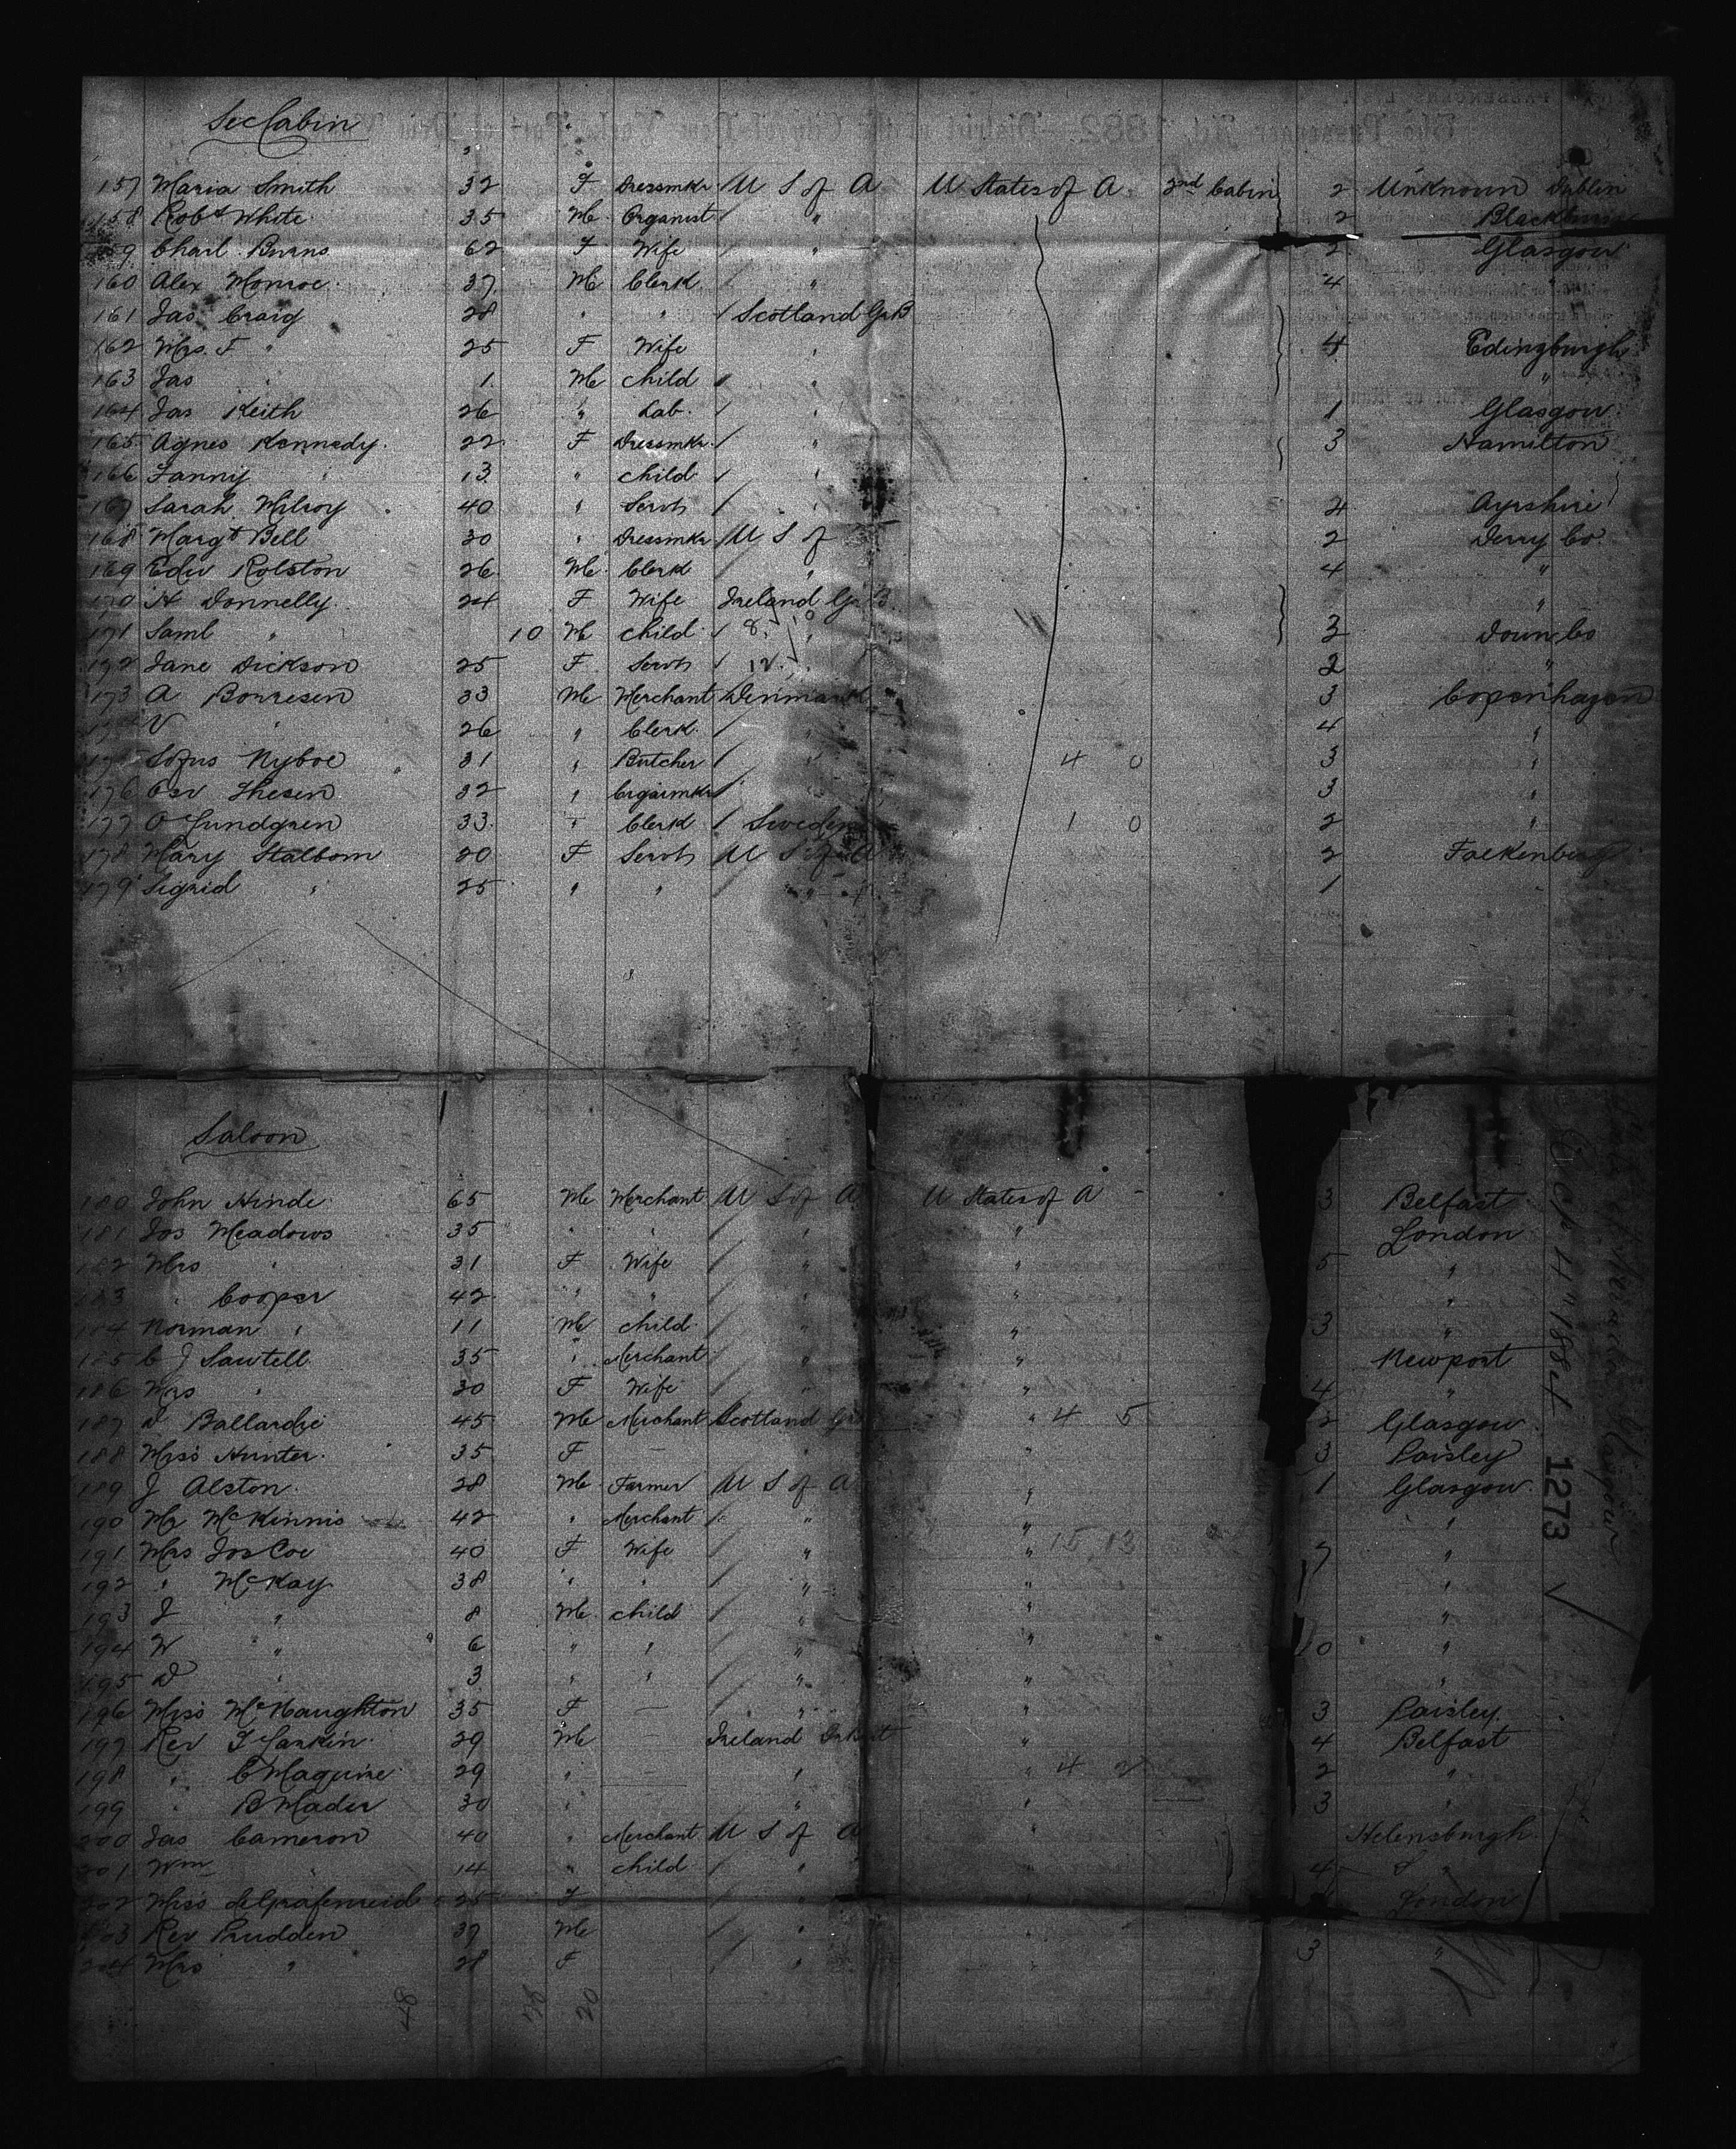 Sec Cabin
157 Maria Smith 32 F Dressmkr / U S of A U States of A 2nd Cabin 2 Unknown Dublin
158 Robt White 35 M Organist / " 2 Blackburn
159 Charl. Burns 62 F Wife / " 2 Glasgow
160 Alex Monroe 37 M Clerk / " 4 "
161 Jas Craig 28 " " / Scotland G B
162 Mrs. F " 25 F Wife " 4 Edingburgh
163 Jas " 1 M Child / " "
164 Jas Keith 26 " Lab. / " 1 Glasgow
165 Agnes Kennedy 22 F Dressmkr / " 3 Hamilton
166 Fanny " 13 " Child / "
167 Sarah Milroy 40 " Servt / " 4 Ayrshire
168 Margt Bell 30 " Dressmkr / U S of 2 Derry Co.
169 Edw Rolston 26 M Clerk / " 4 "
170 H Donnelly 24 F Wife Ireland G B "
171 Saml " 10 M Child / " 3 Down Co
172 Jane Dickson 25 F Servt / 12 2 "
173 A Borresen 33 M Merchant / Denmark 3 Copenhagen
174 V " 26 " Clerk / " 4 "
175 Sofus Nyboe 31 " Butcher / " 4 0 3 "
176 Osv Thesen 32 " Cigarmkr / 3 "
177 O Lundgren 33 " Clerk / Sweden 1 0 2 "
178 Mary Stalbom 20 F Servt / U S of A 2 Falkenberg
179 Sigrid " 25 " " / " 1
Saloon
180 John Hinde 65 M Merchant / U S of A U States of A 3 Belfast
181 Jos Meadows 35 " " / " " London
182 Mrs " 31 F Wife / " " 5 "
183 " Cooper 42 " " / " " "
184 Norman " 11 M Child / " " 3 "
185 C J Sawtell 35 " Merchant / " " Newport
186 Mrs " 30 F Wife / " " 4 "
187 D Ballardie 45 M Merchant Scotland " 4 5 2 Glasgow
188 Miss Hunter 35 F – " " 3 Paisley
189 J Alston 28 M Farmer / U S of A " 1 Glasgow
190 Mr McKinnis 42 " Merchant / " " "
191 Mrs Jos Coe 40 F Wife / " " 15 13 7 "
192 " McKay 38 " " / " " "
193 J " 8 M Child / " " "
194 W " 6 " " / " " 10 "
195 D " 3 " " / " " "
196 Miss McNaughton 35 F – / " " 3 Paisley
197 Rev T Larkin 29 M – Ireland " 4 Belfast
198 " C Maguire 29 " – " " 4 2 2 "
199 " B Mader 30 " " " 3 "
200 Jas Cameron 40 " Merchant U S of A " Helensburgh
201 Wm " 14 " Child / " " 4 "
202 Miss deGrafenreid 25 F / " London
203 Rev Prudden 39 M / " "
204 Mrs " 28 F / " 3 "
1273